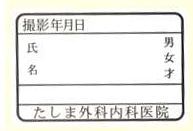 撮影年月日
氏名
男女才
たしま外科内科医院